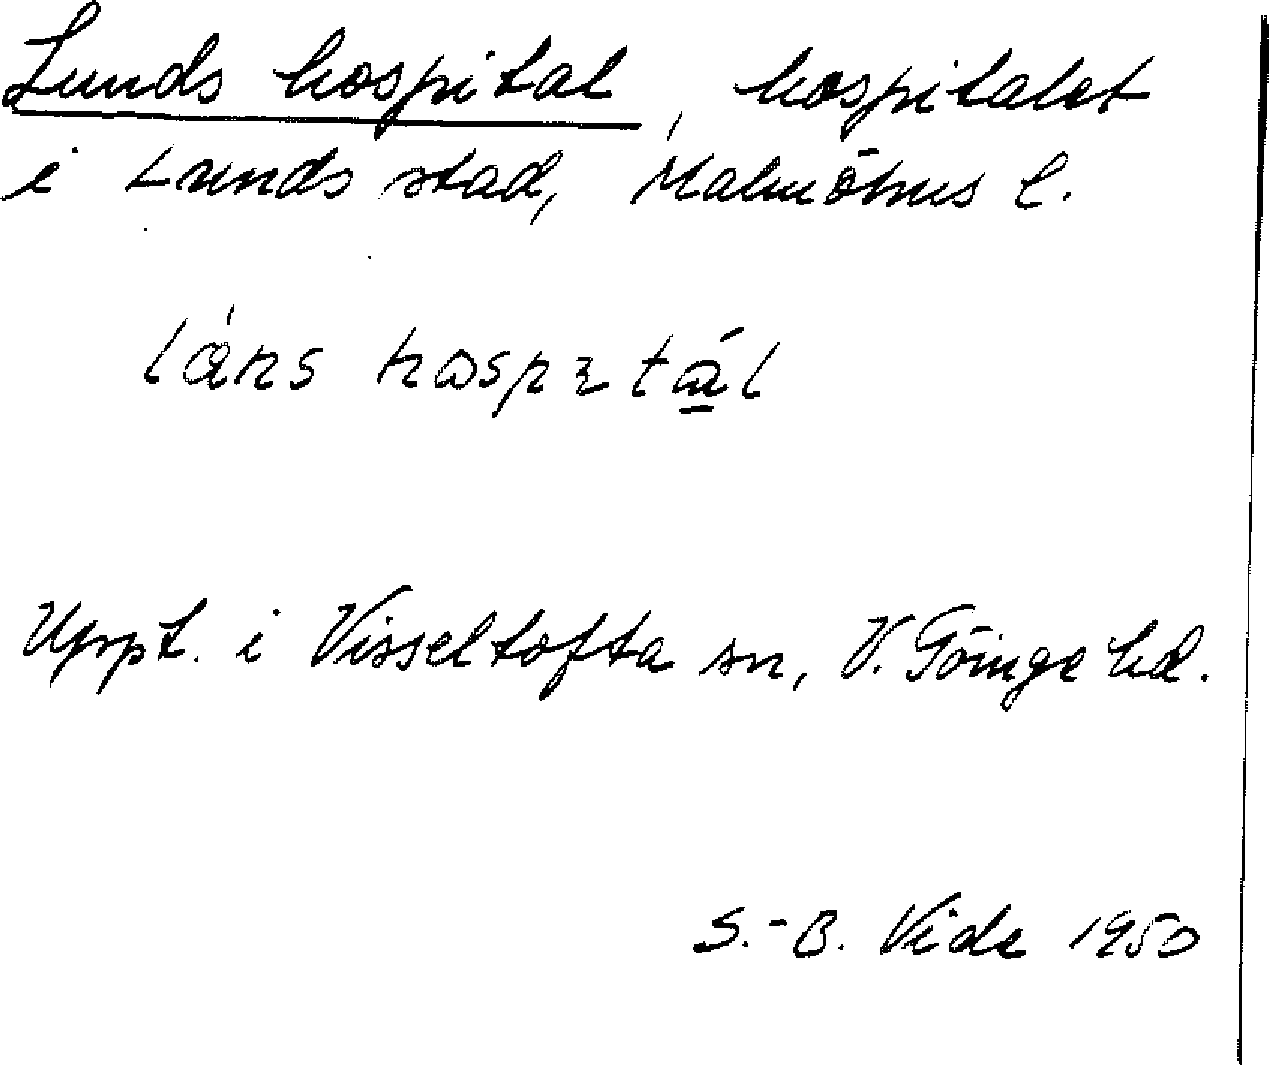 Lunds hospital, hospitalet
i Lunds stad, Malmöhus l.
Uppt. i Visseltofta sn, V. Göinge hd.
S.-B. Vide 1950